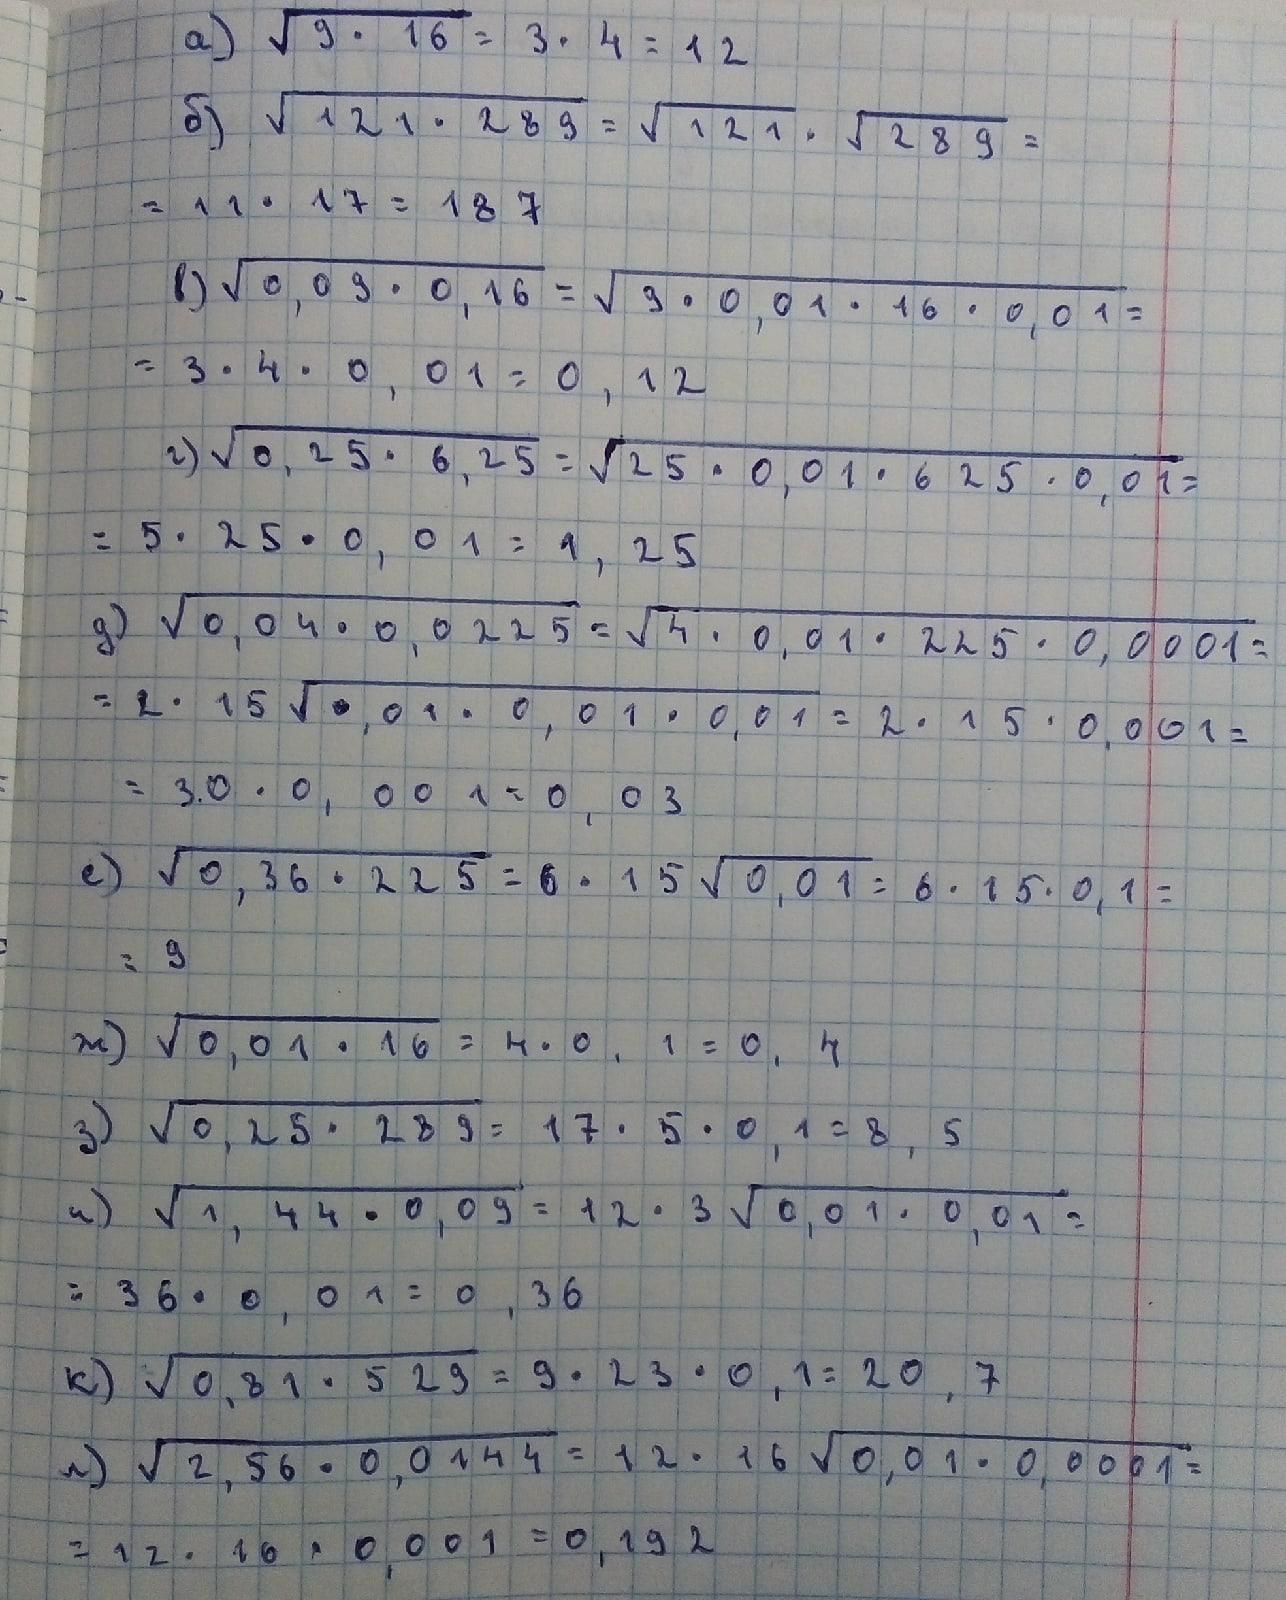 а) √9 · 16 = 3 · 4 = 12
б) √121 · 289 = √121 · √289 =
= 11 · 17 = 187
в) √0,09 · 0,16 = √9 · 0,01 · 16 · 0,01 =
= 3 · 4 · 0,01 = 0,12
г) √0,25 · 6,25 = √25 · 0,01 · 625 · 0,01 =
= 5 · 25 · 0,01 = 1,25
д) √0,04 · 0,0225 = √4 · 0,01 · 225 · 0,0001 =
= 2 · 15 √0,01 · 0,01 · 0,01 = 2 · 15 · 0,001 =
= 30 · 0,001 = 0,03
е) √0,36 · 225 = 6 · 15 √0,01 = 6 · 15 · 0,1 =
= 9
ж) √0,01 · 16 = 4 · 0,1 = 0,4
з) √0,25 · 289 = 17 · 5 · 0,1 = 8,5
и) √1,44 · 0,09 = 12 · 3 √0,01 · 0,01 =
= 36 · 0,01 = 0,36
к) √0,81 · 529 = 9 · 23 · 0,1 = 20,7
л) √2,56 · 0,0144 = 12 · 16 √0,01 · 0,0001 =
= 12 · 16 · 0,001 = 0,192